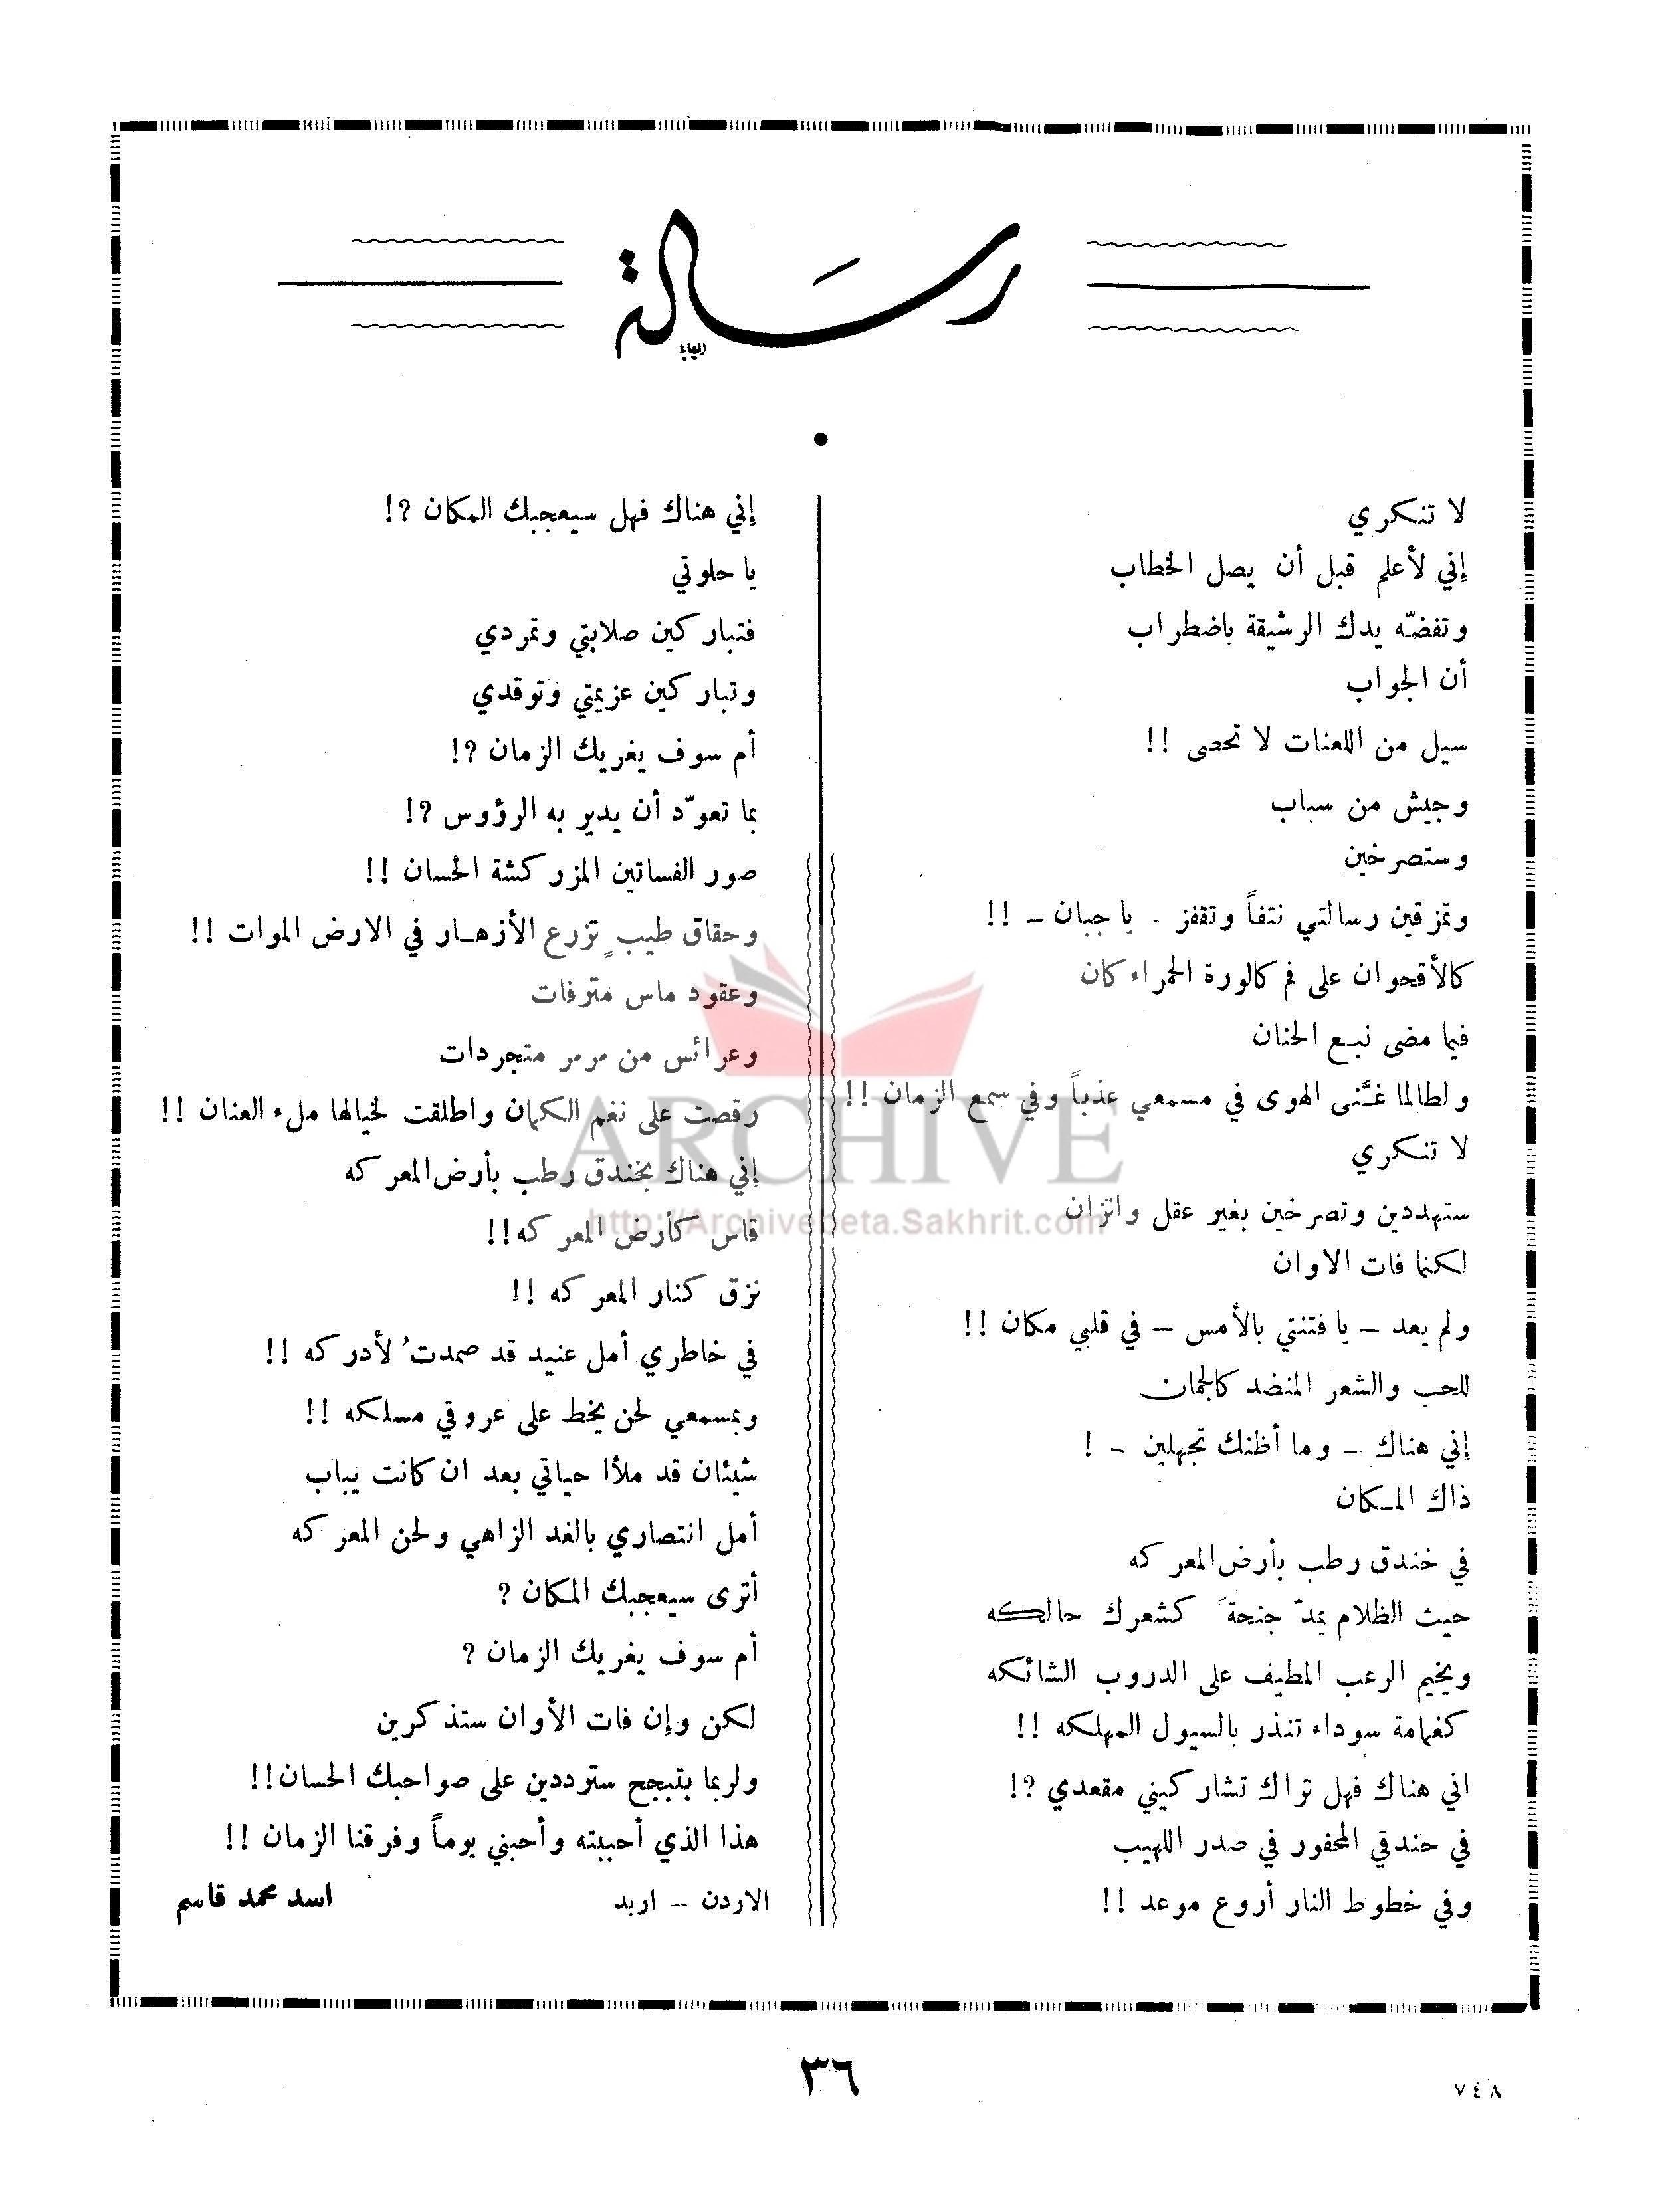 رسالة
لا تنكري
إني لأعلم قبل أن يصل الخطاب
وتفضّه يدك الرشيقة باضطراب
أن الجواب
سيل من اللعنات لا تحصى !!
وجيش من سباب
وستصرخين
وتمزقين رسالتي نتفاً وتقفز - يا جبان - !!
كالأقحوان على فم كالوردة الحمراء كان
فيما مضى نبع الحنان
ولطالما غنَّى الهوى في مسمعي عذباً وفي سمع الزمان !!
لا تنكري
ستهددين وتصرخين بغير عقل واتزان
لكنما فات الاوان
ولم يعد – يا فتنتي بالأمس – في قلبي مكان !!
للحب والشعر المنضد كالجمان
إني هناك – وما أظنك تجهلين – !
ذاك المكان
في خندق رطب بأرض المعركه
حيث الظلام يمدّ جنحةَ كشعرك حالكه
ويخيم الرعب المطيف على الدروب الشائكه
كغمامة سوداء تنذر بالسيول المهلكه !!
اني هناك فهل تراك تشاركيني مقعدي ?!
في حندقي المحفور في صدر اللهيب
وفي خطوط النار أروع موعد !!
إني هناك فهل سيعجبك المكان ?!
يا حلوتي
فتباركين صلابتي وتمردي
وتباركين عزيمتي وتوقدي
أم سوف يغريك الزمان ?!
بما تعوّد أن يدير به الرؤوس ?!
صور الفساتين المزركشة الحسان !!
وحقاق طيبٍ تزرع الأزهار في الارض الموات !!
وعقود ماس مترفات
وعرائس من مرمر متجردات
رقصت على نغم الكمان واطلقت لخيالها ملء العنان !!
إني هناك بخندق رطب بأرض المعركه
قاس كأرض المعركه!!
نزق كنار المعركه !!
في خاطري أمل عنيد قد صمدتُ لأدركه !!
وبمسمعي لحن يخط على عروقي مسلكه !!
شيئان قد ملأا حياتي بعد ان كانت يباب
أمل انتصاري بالغد الزاهي ولحن المعركه
أترى سيعجبك المكان ?
أم سوف يغريك الزمان ?
لكن وإن فات الأوان ستذكرين
ولربما بتبجح سترددين على صواحبك الحسان!!
هذا الذي أحببته وأحبني يوماً وفرقنا الزمان !!
الاردن – اربد
اسد محمد قاسم
ARCHIVE
http://Archivebeta.Sakhrit.com
٣٦
٧٤٨